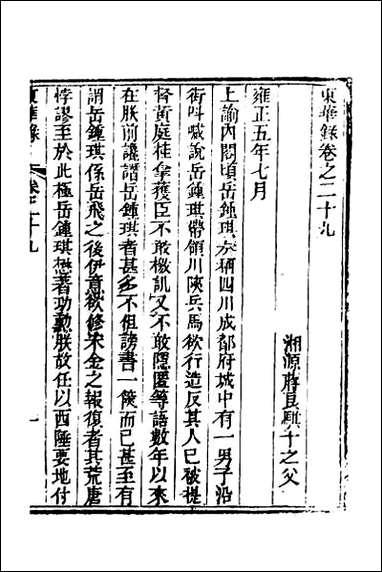 東華錄卷之二十九
湘源蔣良騏千之父
雍正五年七月
上諭內閣頃岳鍾琪奏稱四川成都府城中有一男子沿
街叫喊說岳鍾琪帶領川陝兵馬欲行造反其人已被提
督黃庭桂拿獲臣不敢檄訊又不敢隱匿等語數年以來
在朕前讒譖岳鍾琪者甚多不但謗書一篋而已甚至有
謂岳鍾琪係岳飛之後伊意欲修宋金之報復者其荒唐
悖謬至於此極岳鍾琪懋著功勳朕故任以西陲要地付
東華錄 卷二十九
一